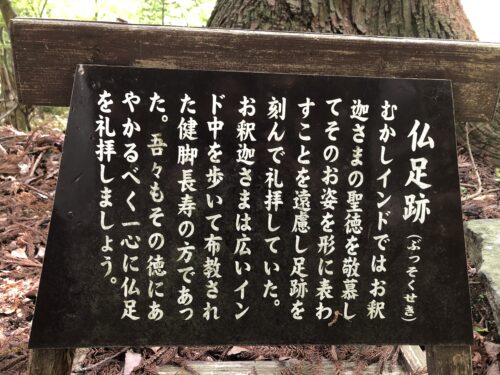 仏足跡(ぶっそくせき)
むかしインドではお釈
迦さまの聖徳を敬慕し
てそのお姿を形に表わ
すことを遠慮し足跡を
刻んで礼拝していた。
お釈迦さまは広いイン
ド中を歩いて布教され
た健脚長寿の方であっ
た。吾々もその徳にあ
やかるべく一心に仏足
を礼拝しましょう。